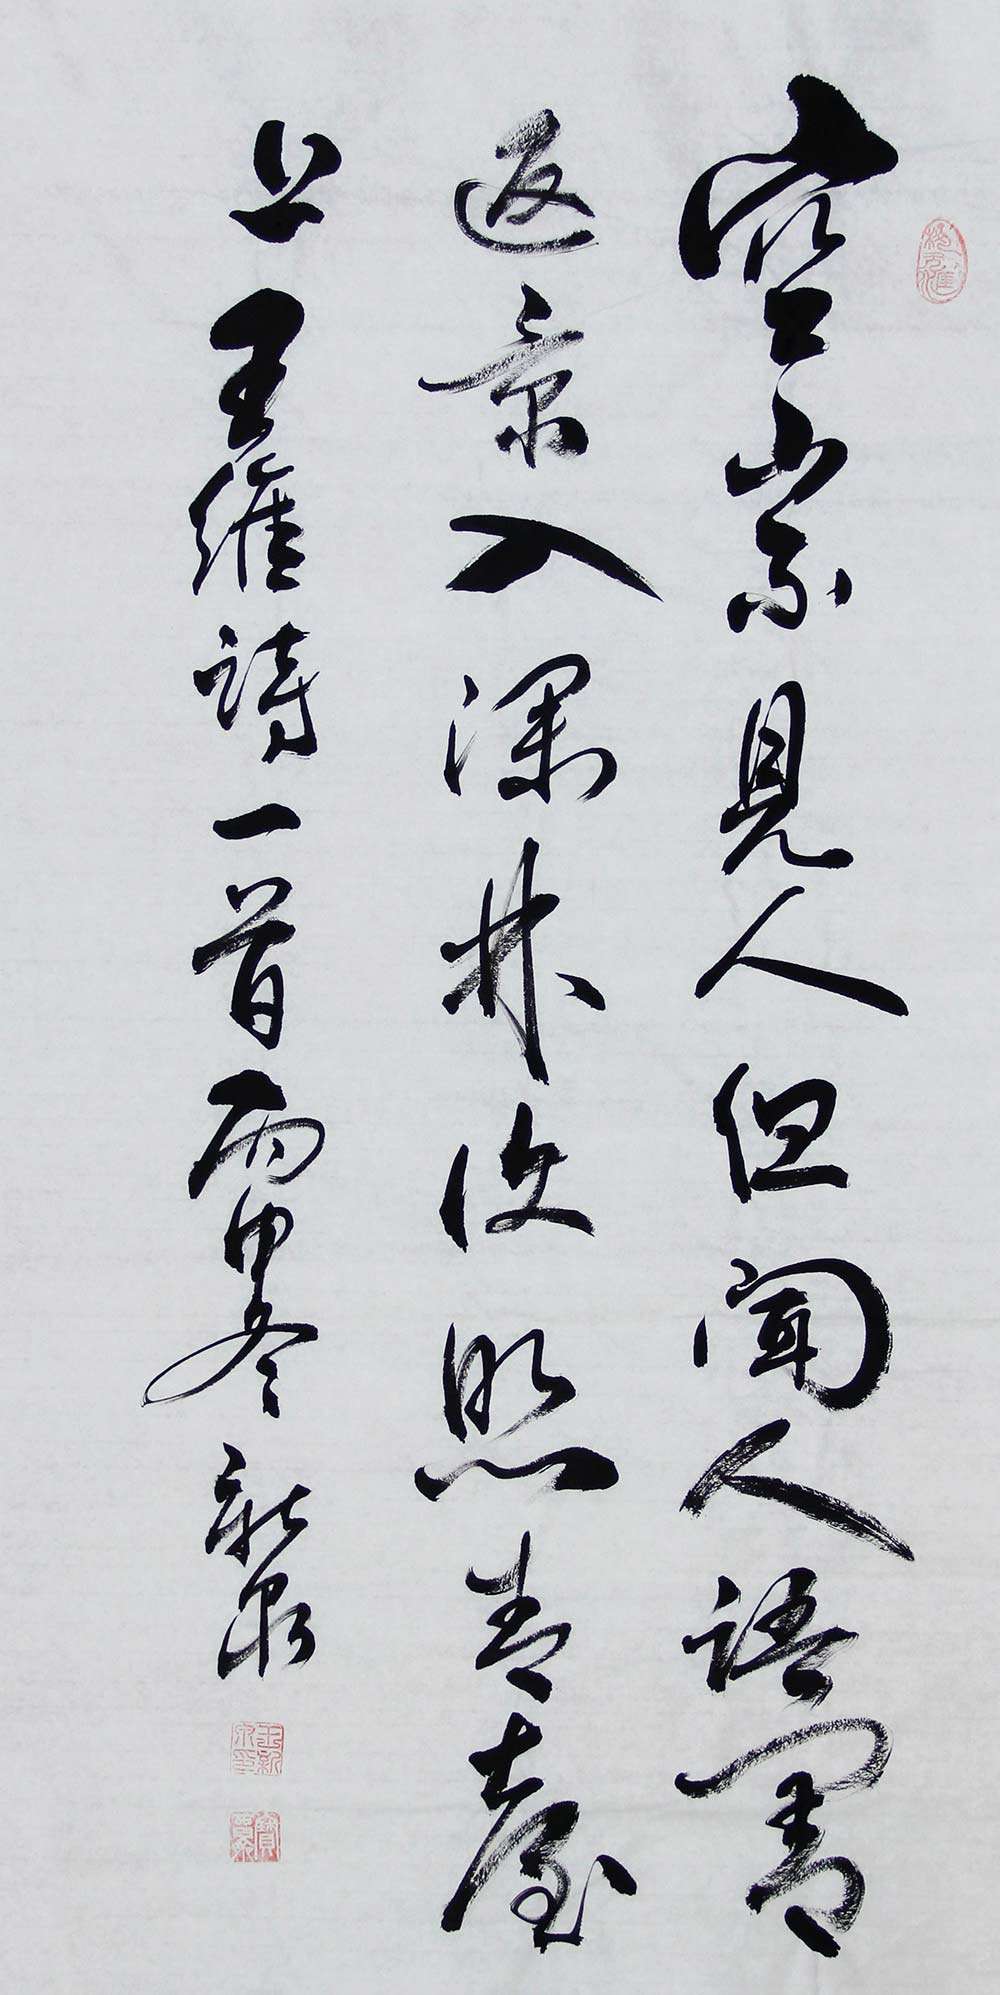 空山不見人但聞人語響
返景入深林復照青臺
上王維詩一首丙申冬新泉
王新泉印